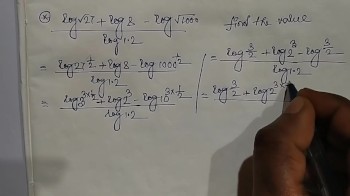 (*) log√27 + log 8 - log√1000 find the value
log 1.2
= log 27^½ + log 8 - log 1000^½
log 1.2
= log 3^3×½ + log 2^3 - log 10^3×½
log 1.2
= log 3^3/2 + log 2^3 - log 3/2
log 1.2
= log 3/2 + log 2^3